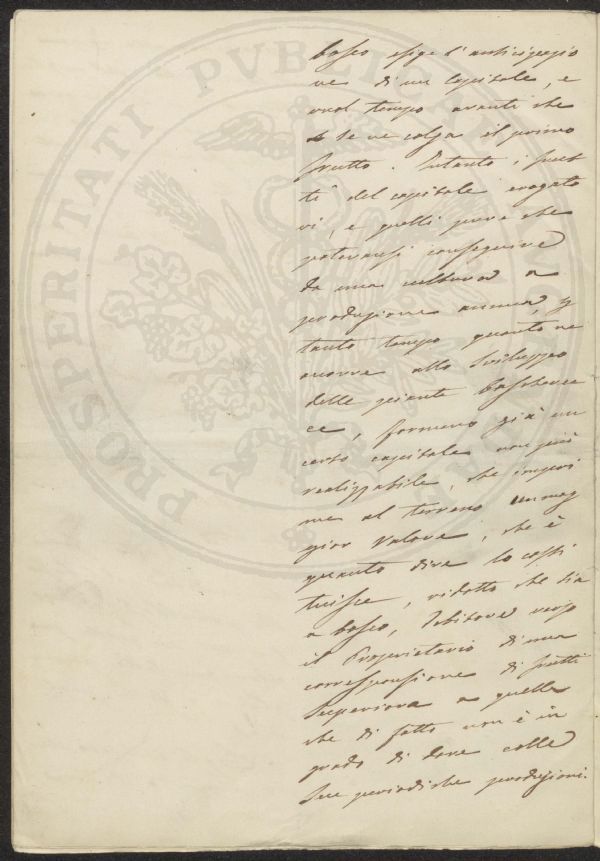 bosco esige l'anticipazio
ne di un Capitale, e
vuol tempo avanti che
se ne colga il primo
frutto. Intanto i frut
ti del capitale erogato
vi, e quelli pure che
potevansi conseguire
da una cultura a
produzione annua, p
tanto tempo quanto ne
occorre allo sviluppo
delle piante boscherec
ce, formano già un
certo capitale non più
realizzabile, che impri
me al terreno un mag
gior valore, che è
quanto dire lo costi
tuisce, ridotto che sia
a bosco, debitore verso
il Proprietario di una
corresponsione di frutti
superiore a quella
che di fatto non è in
grado di dare colle
sue periodiche produzioni.
PROSPERITATI PUBLICAE AUGENDAE